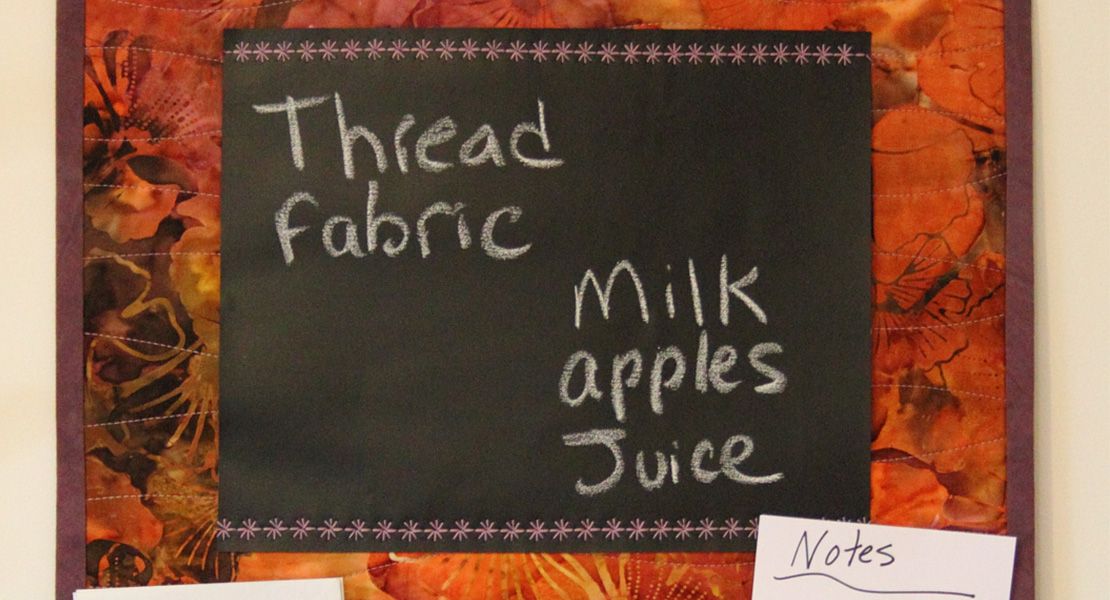 Thread
fabric
Milk
apples
Juice
Notes